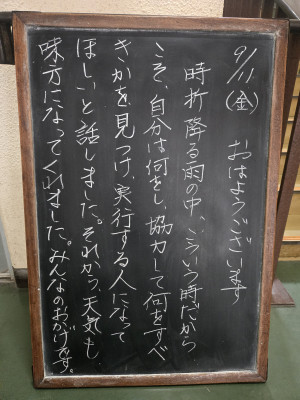 9/11(金) おはようございます
時折降る雨の中、こういう時だから
こそ、自分は何をし、協力して何をすべ
きかを、見つけ、実行する人になって
ほしいと話しました。それから、天気も
味方になってくれました。みんなのおかげです。